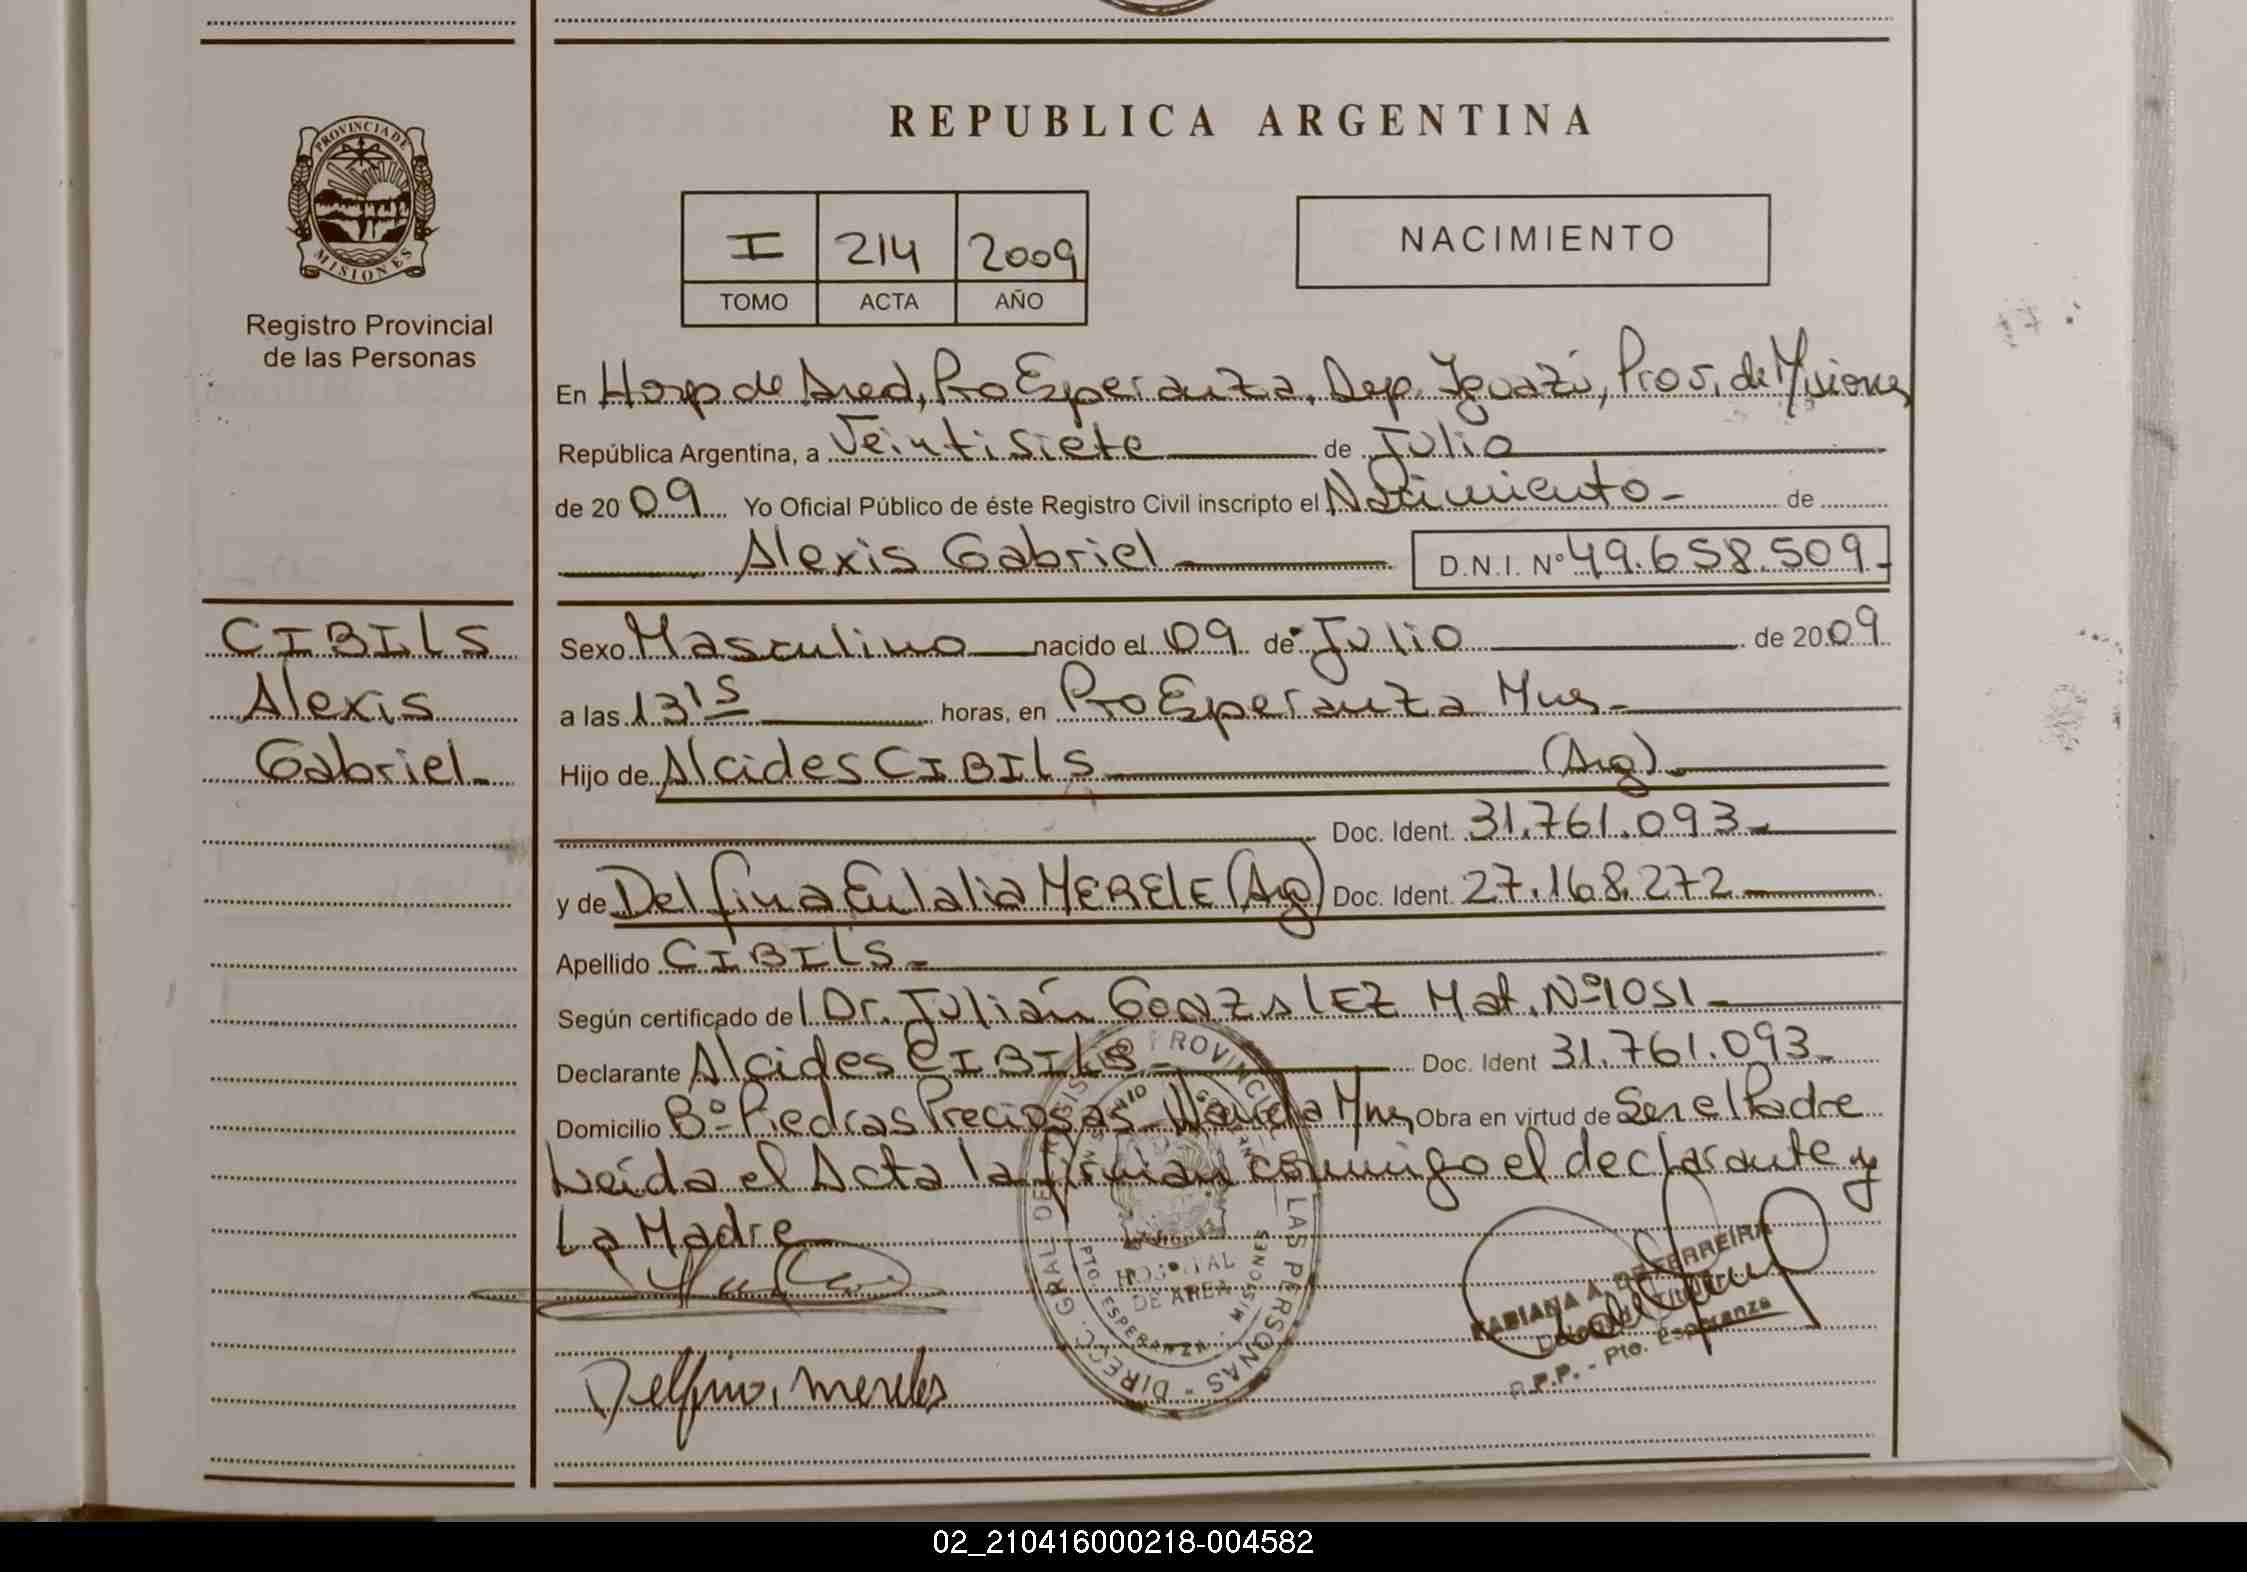 REPUBLICA ARGENTINA
PROVINCIA DE
MISIONES
Registro Provincial
de las Personas
I 214 2009
TOMO ACTA AÑO
NACIMIENTO
En Hosp de Area, Pto Esperanza, Dep. Iguazú, Prov. de Misiones
República Argentina, a Veintisiete de Julio
de 2009 Yo Oficial Público de éste Registro Civil inscripto el Nacimiento - de
Alexis Gabriel D.N.I. Nº 49.658.509-
CIBILS
Alexis
Gabriel-
Sexo Masculino nacido el 09 de Julio de 2009
a las 13 15 horas, en Pto Esperanza Mnes-
Hijo de Alcides CIBILS (Arg)-
Doc. Ident. 31.761.093-
y de Delfina Eulalia MERELE (Arg) Doc. Ident. 27.168.272
Apellido CIBILS-
Según certificado del Dr. Julián GONZALEZ Mat. Nº 1051-
Declarante Alcides CIBILS- Doc. Ident 31.761.093-
Domicilio Bº Piedras Preciosas- Wanda Mnes, Obra en virtud de Ser el Padre
Leída el Acta la firman conmigo el declarante y
La Madre
DIREC. GRAL DE REGISTRO PROVINCIAL DE LAS PERSONAS
HOSPITAL
DE AREA
PTO. ESPERANZA - MISIONES
FABIANA A. DE FERREIRA
Delegada Titular
R.P.P. - Pto. Esperanza
Delfina, mereles
02_210416000218-004582